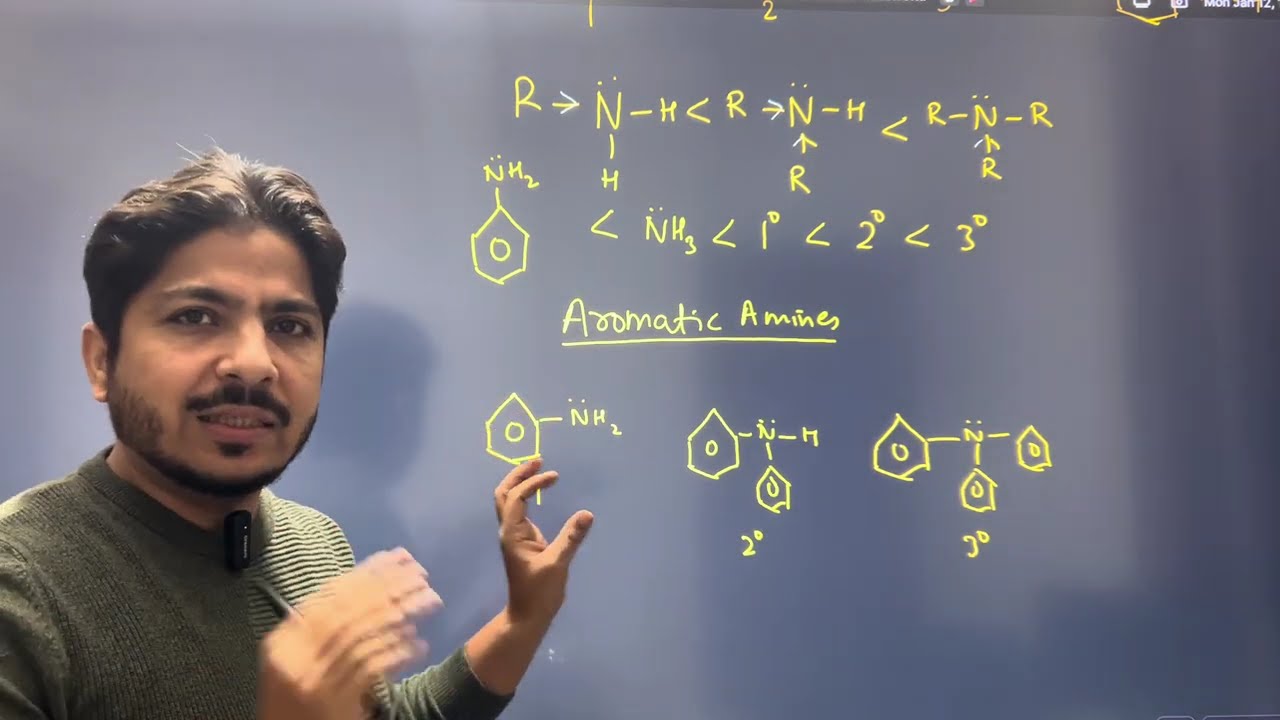 Mon Jan 12,
1 2
R → N̈ – H < R → N̈ – H < R – N̈ – R
H R R
N̈H₂
< N̈H₃ < 1° < 2° < 3°
Aromatic Amines
N̈H₂ N̈ – H N̈
2° 3°